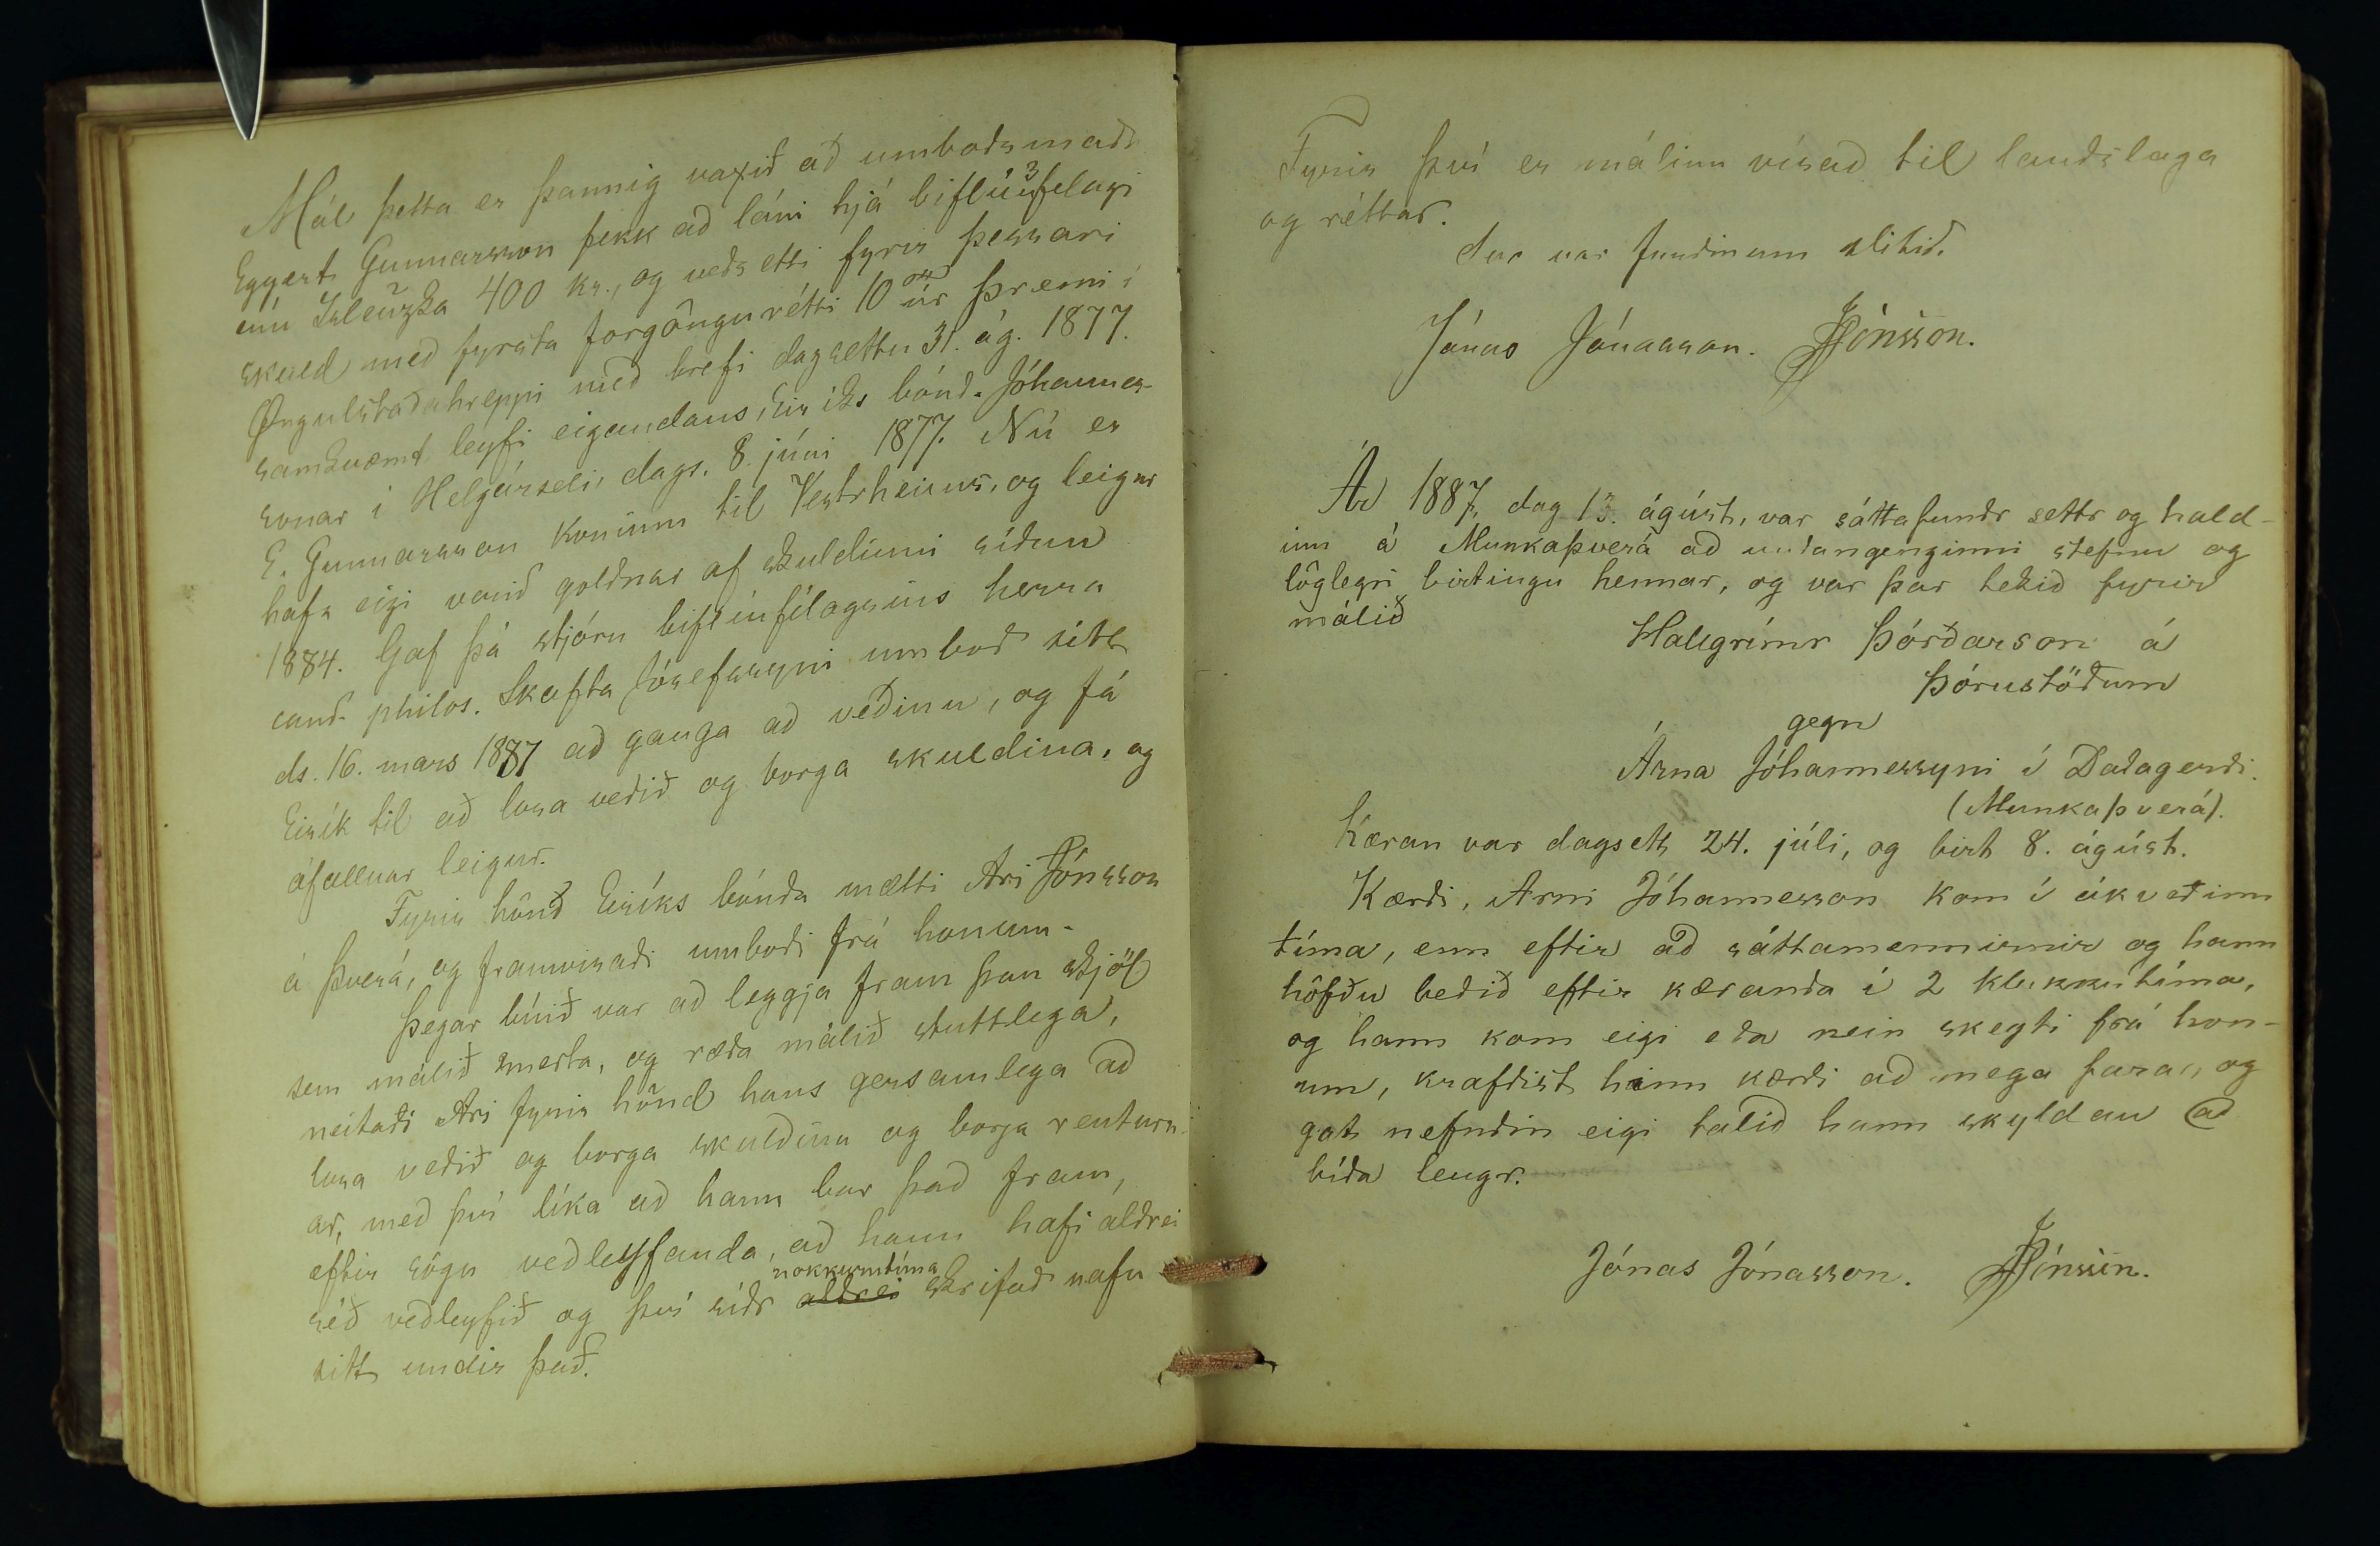 Mál þetta er þannig vaxið að umboðsmaðr
Eggert Gunnarsson fekk að láni hjá biflíufelagi
inu Islenzka 400 kr., og veðsetti fyrir þessari
skuld með fyrsta forgöngurétti 10 úr Þremi í
Øngulstaðahreppi með brefi dagsettu 31. ág. 1877.
samkvæmt leyfi eigandans, Eiríks bónd. Jóhannes-
sonar í Helgárseli, dags. 8. júni 1877. Nú er
E. Gunnarsson kominn til Vestrheims, og leigur
hafa eigi verið goldnar af skuldinni síðan
1884. Gaf þá stjórn biflíufélagsins herra
cand. philos. Skafta Jósefssyni umboð sitt
ds. 16. mars 1887 að ganga að veðinu, og fá
Eirík til að losa veðið og borga skuldina, og
áfallnar leigur.
Fyrir hönd Eiríks bónda mætti Ari Jónsson
á Þverá, og framvísaði umboði frá honum.
Þegar búið var að leggja fram þau skjöl
sem málið snerta, og ræða málið stuttlega,
neitaði Ari fyrir hönd hans gersamlega að
losa veðið og borga skuldina og borga renturn-
ar, með því líka að hann bar það fram,
eftir sögn veðleyfanda, að hann hafi aldrei
nokkurntíma
séð veðleyfið og því síðr aldrei skrifað nafn
sitt undir það.
Fyrir því er málinu vísað til landslaga
og réttar.
Svo var fundinum slitið.
Jónas Jónasson. JJónsson.
Ár 1887, dag 13. ágúst, var sáttafundr settr og hald-
inn á Munkaþverá að undangenginni stefnu og
löglegri birtingu hennar, og var þar tekið fyrir
málið
Hallgrímr Þórðarson á
Þórustöðum
gegn
Árna Jóhannessyni í Daðagerði.
(Munkaþverá).
Kæran var dagsett 24. júli, og birt 8. ágúst.
Kærði, Arni Jóhannesson kom í ákveðinn
tíma, enn eftir að sáttamennirnir og hann
höfðu beðið eftir kæranda í 2 klukkutíma,
og hann kom eigi eða nein skeyti frá hon-
um, krafðist hinn kærði að mega fara, og
gat nefndin eigi talið hann skyldan að
bíða lengr.
Jónas Jónasson. JJónsson.